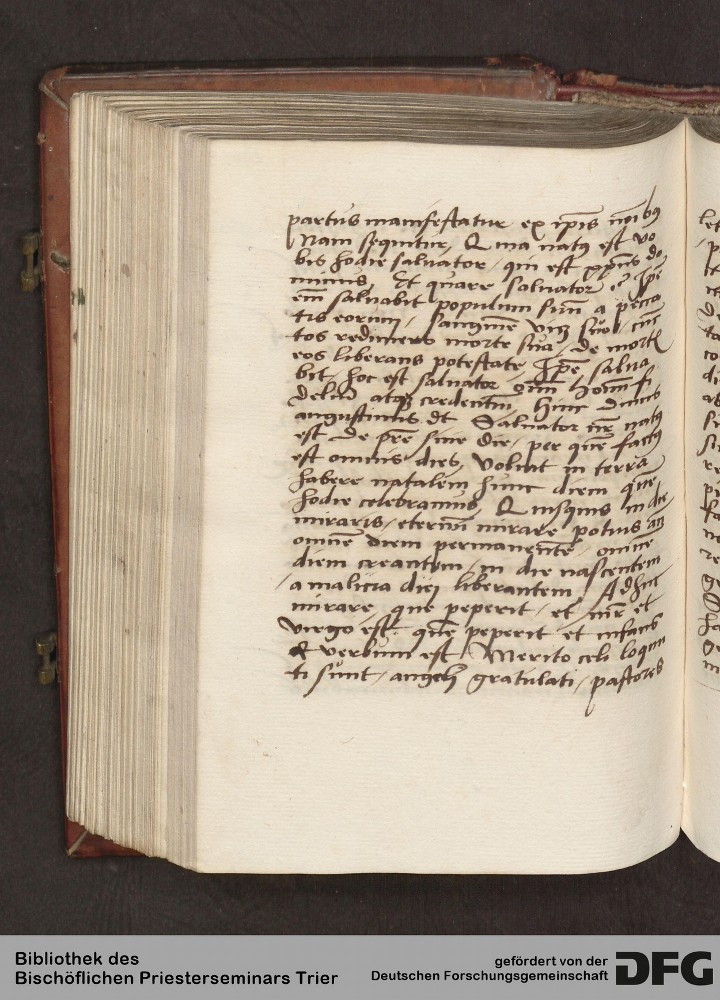 partus manifestatur ex ip̄is noībꝯ
Nam sequitur, Quia natꝯ est vo
bis hodie saluator, qui est xp̄us do
minus, Et quare saluator ē Ip̄e
em̄ saluabit populum suū a pecca
tis eorum,
tos redimens morte sua, de morte
eos liberans potestate, Ip̄e salua
bit, hoc est saluator oīm hoīm fi
deliū atqꝫ credentiū, Hinc Diuus
augustinus dt̄ Saluator nr̄ natꝯ
est de p̄re sine die, per quē factꝯ
est omnis dies, voluit in terra
habere natalem hunc diem quē
hodie celebramus, Quisquis in die
miraris, eternū mirare potius an̄
omnē diem permanentē, omnē
diem creantem, in die nascentem
a malicia diei liberantem, Adhuc
mirare, que peperit, et mr̄ et
virgo est, quē peperit et infans
& verbum est, Merito celi loquu
ti sunt, angeli gratulati, pastores
Bibliothek des
Bischöflichen Priesterseminars Trier
gefördert von der
Deutschen Forschungsgemeinschaft
DFG